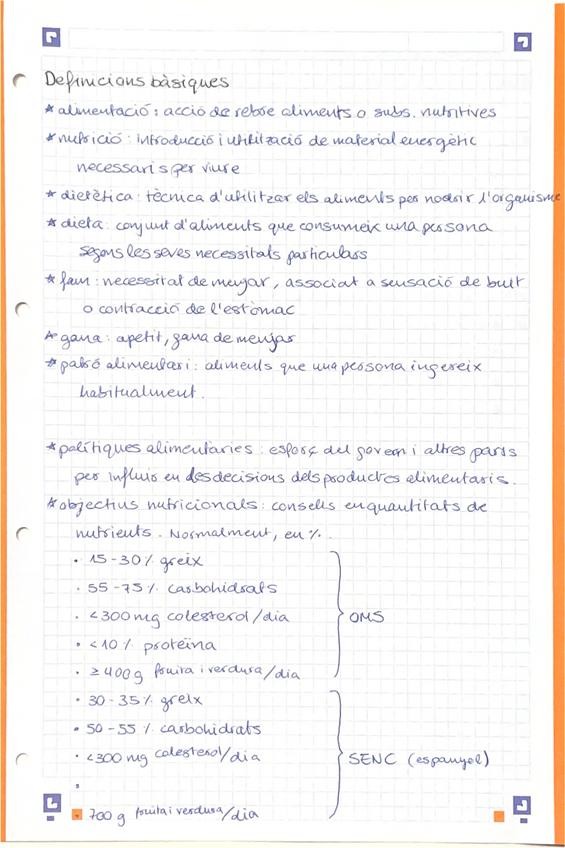 Definicions bàsiques
* alimentació: acció de rebre aliments o subs. nutritives
* nutrició: introducció i utilització de material energètic
necessaris per viure
* dietètica: tècnica d'utilitzar els aliments per nodrir l'organisme
* dieta: conjunt d'aliments que consumeix una persona
segons les seves necessitats particulars
* fam: necessitat de menjar, associat a sensació de buit
o contracció de l'estómac
* gana: apetit, gana de menjar
* patró alimentari: aliments que una persona ingereix
habitualment.
* polítiques alimentaries: esforç del govern i altres parts
per influir en les decisions dels productes alimentaris.
* objectius nutricionals: consells en quantitats de
nutrients. Normalment, en %.
· 15-30% greix
· 55-75% carbohidrats
· <300 mg colesterol/dia
· <10% proteïna
· ≥400g fruita i verdura/dia
OMS
· 30-35% greix
· 50-55% carbohidrats
· <300 mg colesterol/dia
·
700 g fruita i verdura/dia
SENC (espanyol)